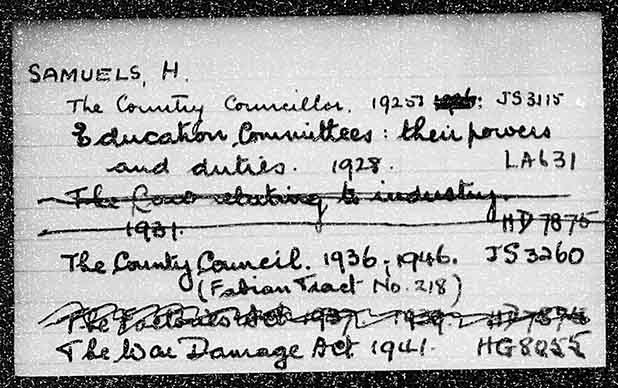 SAMUELS, H.
The County Councillor. 1925; JS3115
Education Committees: their powers
and duties. 1928. LA631
The Law relating to industry.
1931. HD 7875
The County Council. 1936; 1946. JS3260
(Fabian Tract No. 218)
The Factories Act 1937. 1939. HD 7876
The War Damage Act 1941. HG8055